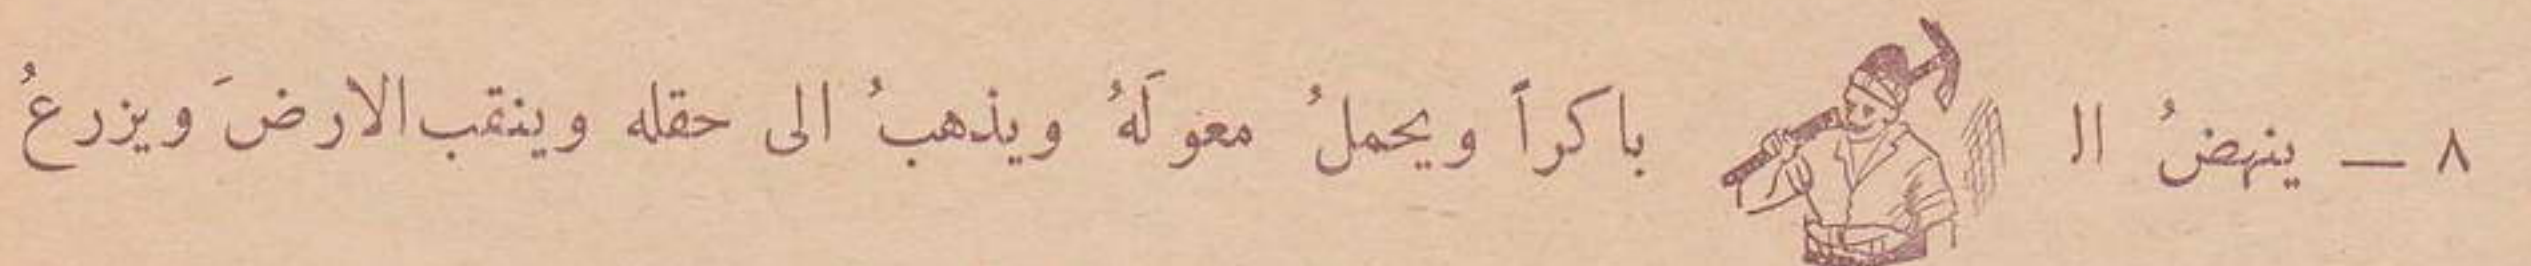 ٨ — ينهضُ الـ باكراً ويحملُ معولَهُ ويذهبُ الى حقله وينقب الارضَ ويزرعُ